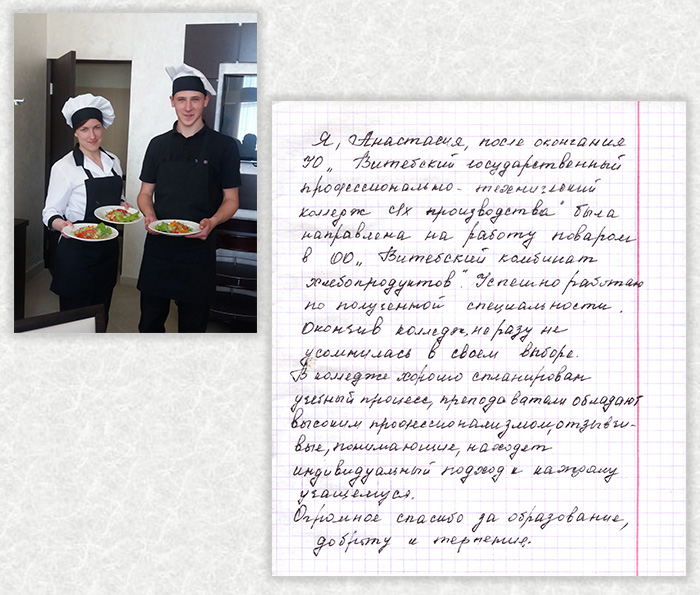 Я, Анастасия, после окончания
УО „ Витебский государственный
профессионально - технический
колледж с/х производства" была
направлена на работу поваром
в ОО „ Витебский комбинат
хлебопродуктов". Успешно работаю
по полученной специальности.
Окончив колледж, не разу не
усомнилась в своем выборе.
В колледже хорошо спланирован
учебный процесс, преподаватели обладают
высоким профессионализмом, отзывчи-
вые, понимающие, находят
индивидуальный подход к каждому
учащемуся.
Огромное спасибо за образование,
доброту и терпение.